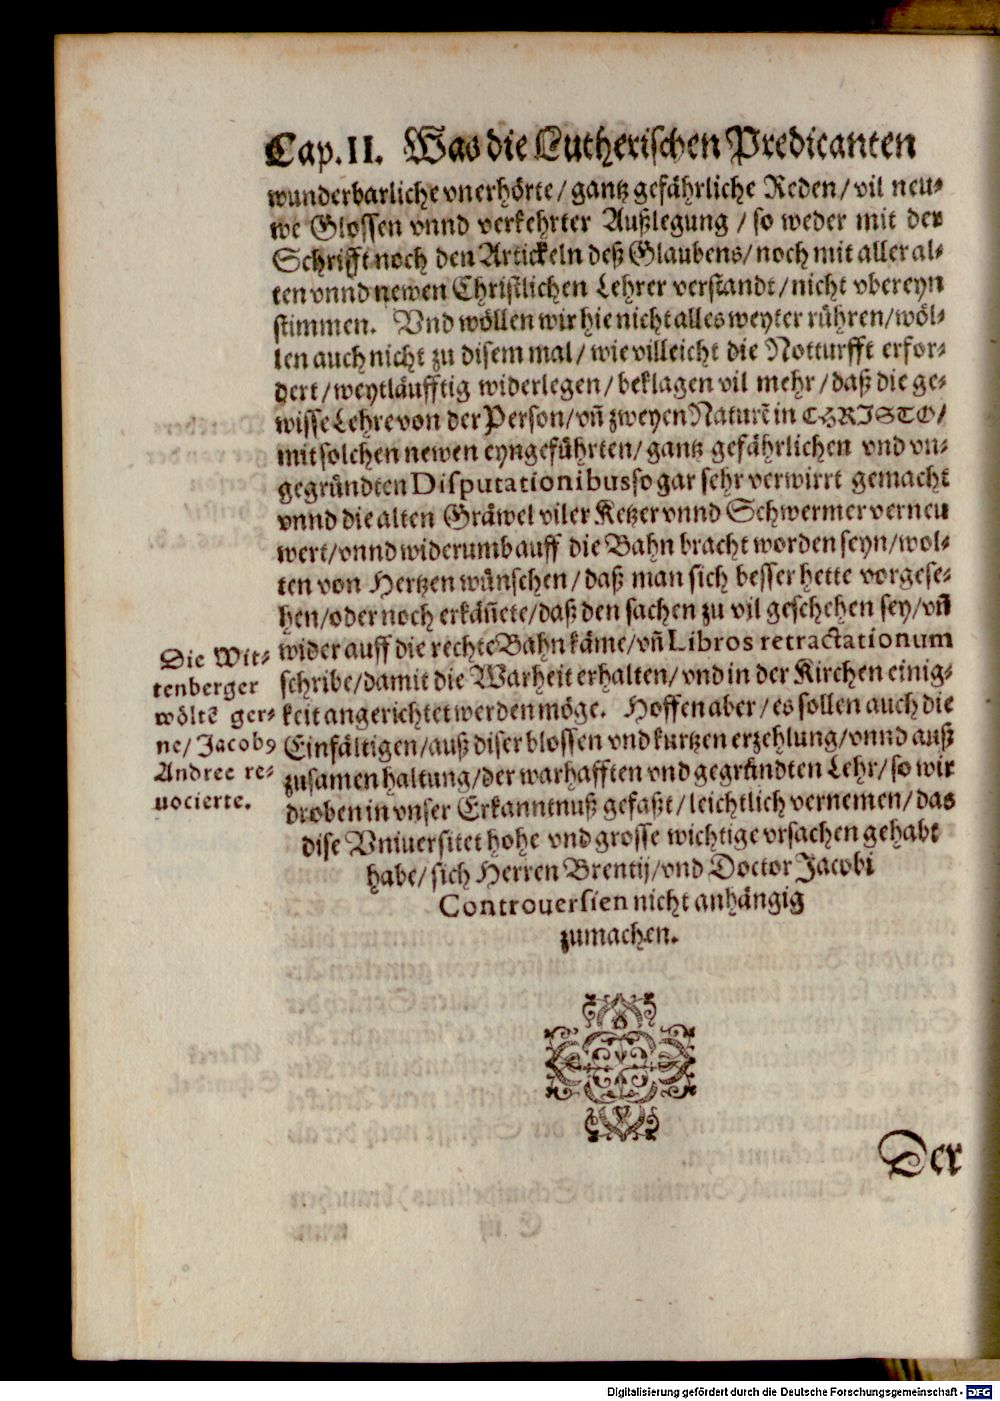 Cap. II. Was die Lutherischen Predicanten
wunderbarliche vnerhörte/ gantz gefährliche Reden/ vil neu-
we Glossen vnnd verkehrter Außlegung / so weder mit der
Schrifft noch den Artickeln deß Glaubens/ noch mit aller al-
ten vnnd newen Christlichen Lehrer verstandt/ nicht vbereyn
stimmen. Vnd wöllen wir hie nicht alles weyter rühren/ wöl-
len auch nicht zu disem mal/ wie villeicht die Notturfft erfor-
dert/ weytläufftig widerlegen/ beklagen vil mehr/ daß die ge-
wisse Lehre von der Person/ vñ zweyen Naturẽ in CHRISTO/
mit solchen newen eyngeführten/ gantz gefährlichen vnd vn-
gegründten Disputationibus so gar sehr verwirrt gemacht
vnnd die alten Gräwel viler Ketzer vnnd Schwermer verneu
wert/ vnnd widerumb auff die Bahn bracht worden seyn/ wol-
ten von Hertzen wünschen/ daß man sich besser hette vorgese-
hen/ oder noch erkäñete/ daß den sachen zu vil geschehen sey/ vñ
wider auff die rechte Bahn käme/ vñ Libros retractationum
schribe/ damit die Warheit erhalten/ vnd in der Kirchen einig-
keit angerichtet werden möge. Hoffen aber/ es sollen auch die
Einfältigen/ auß diser blossen vnd kurtzen erzehlung/ vnnd auß
zusamen haltung/ der warhafften vnd gegründten Lehr/ so wir
droben in vnser Erkanntnuß gefaßt/ leichtlich vernemen/ das
dise Vniuersitet hohe vnd grosse wichtige vrsachen gehabt
habe/ sich Herren Brentij/ vnd Doctor Jacobi
Controuersien nicht anhängig
zumachen.
Die Wit-
tenberger
wöltẽ ger-
ne/ Jacobꝰ
Andree re-
uocierte.
Der
Digitalisierung gefördert durch die Deutsche Forschungsgemeinschaft - DFG